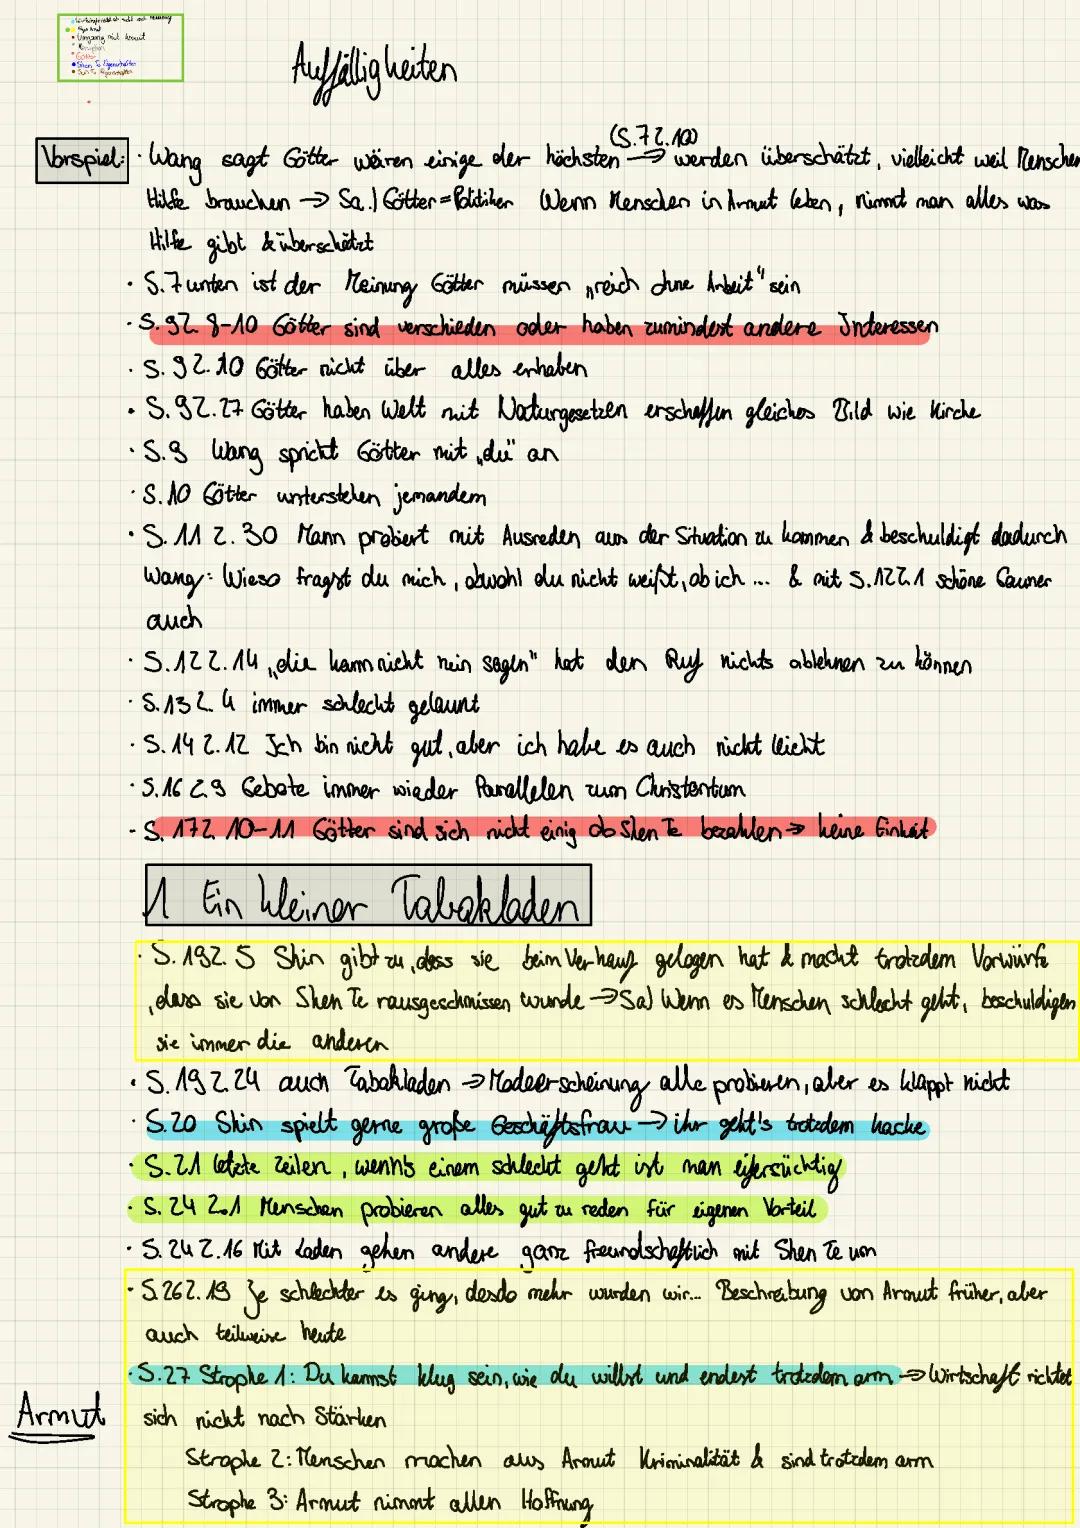 Umgang mit Armut
Götter
Shen Te Eigenschaften
Auffälligkeiten
(S.7 Z.10)
Vorspiel: · Wang sagt Götter wären einige der höchsten → werden überschätzt, vielleicht weil Menschen
Hilfe brauchen → Sa.) Götter = Politiker Wenn Menschen in Armut leben, nimmt man alles was
Hilfe gibt & überschätzt
· S.7 unten ist der Meinung Götter müssen „reich ohne Arbeit" sein
· S.9 Z. 8-10 Götter sind verschieden oder haben zumindest andere Interessen
· S. 9 Z.10 Götter nicht über alles erhaben
· S. 9 Z.27 Götter haben Welt mit Naturgesetzen erschaffen gleiches Bild wie Kirche
· S.9 Wang spricht Götter mit „du" an
· S.10 Götter unterstehen jemandem
· S. 11 Z. 30 Mann probiert mit Ausreden aus der Situation zu kommen & beschuldigt dadurch
Wang: Wieso fragst du mich, obwohl du nicht weißt, ob ich ... & mit S.12 Z.1 schöne Gauner
auch
· S.12 Z.14 „die kann nicht nein sagen" hat den Ruf nichts ablehnen zu können
· S.13 Z.4 immer schlecht gelaunt
· S.14 Z.12 Ich bin nicht gut, aber ich habe es auch nicht leicht
· S.16 Z.9 Gebote immer wieder Parallelen zum Christentum
· S. 17 Z. 10-11 Götter sind sich nicht einig ob Shen Te bezahlen → keine Einheit
1 Ein kleiner Tabakladen
· S. 19 Z. 5 Shin gibt zu, dass sie beim Verkauf gelogen hat & macht trotzdem Vorwürfe
, dass sie von Shen Te rausgeschmissen wurde → Sa) Wenn es Menschen schlecht geht, beschuldigen
sie immer die anderen
· S. 19 Z.24 auch Tabakladen → Modeerscheinung alle probieren, aber es klappt nicht
· S.20 Shin spielt gerne große Geschäftsfrau → ihr geht's trotzdem kacke
· S.21 letzte Zeilen, wenn's einem schlecht geht ist man eifersüchtig
· S. 24 Z.1 Menschen probieren alles gut zu reden für eigenen Vorteil
· S. 24 Z.16 Mit Laden gehen andere ganz freundschaftlich mit Shen Te um
· S.26 Z.19 Je schlechter es ging, desdo mehr wurden wir... Beschreibung von Armut früher, aber
auch teilweise heute
· S.27 Strophe 1: Du kannst klug sein, wie du willst und endest trotzdem arm → Wirtschaft richtet
Armut sich nicht nach Stärken
Strophe 2: Menschen machen aus Armut Kriminalität & sind trotzdem arm
Strophe 3: Armut nimmt allen Hoffnung